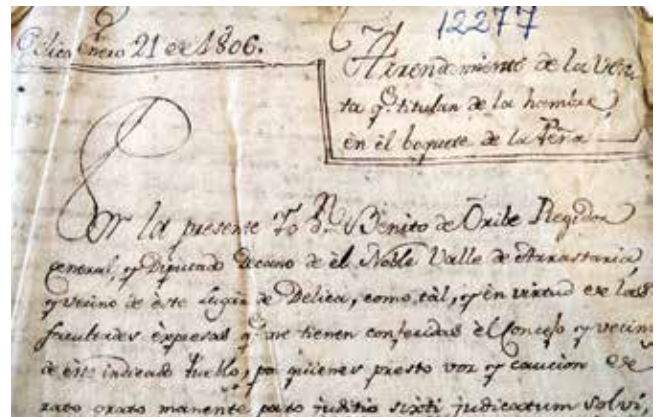 12277
Délica Enero 21 de 1806.
Arrendamiento de la Ven,,
ta q.e titulan de la hambre,
en el boquete de la Peña
Por la presente Yo D.n Benito de Oribe Regidor
general, y Diputado Decano de el Noble Valle de Arrastaria
y vecino de este Lugar de Delica, como tál, y en virtud de las
facultades expresas q.e me tienen conferidas él Concejo y vecin
de este indicado Pueblo, por quienes presto voz y caucion de
rato grato manente pacto juditio sixti judicatum solvi,